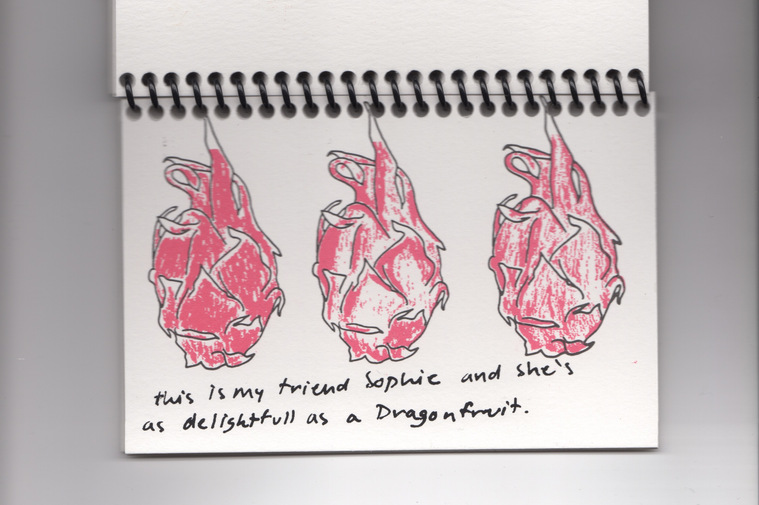 this is my friend Sophie and she's
as delightfull as a Dragonfruit.